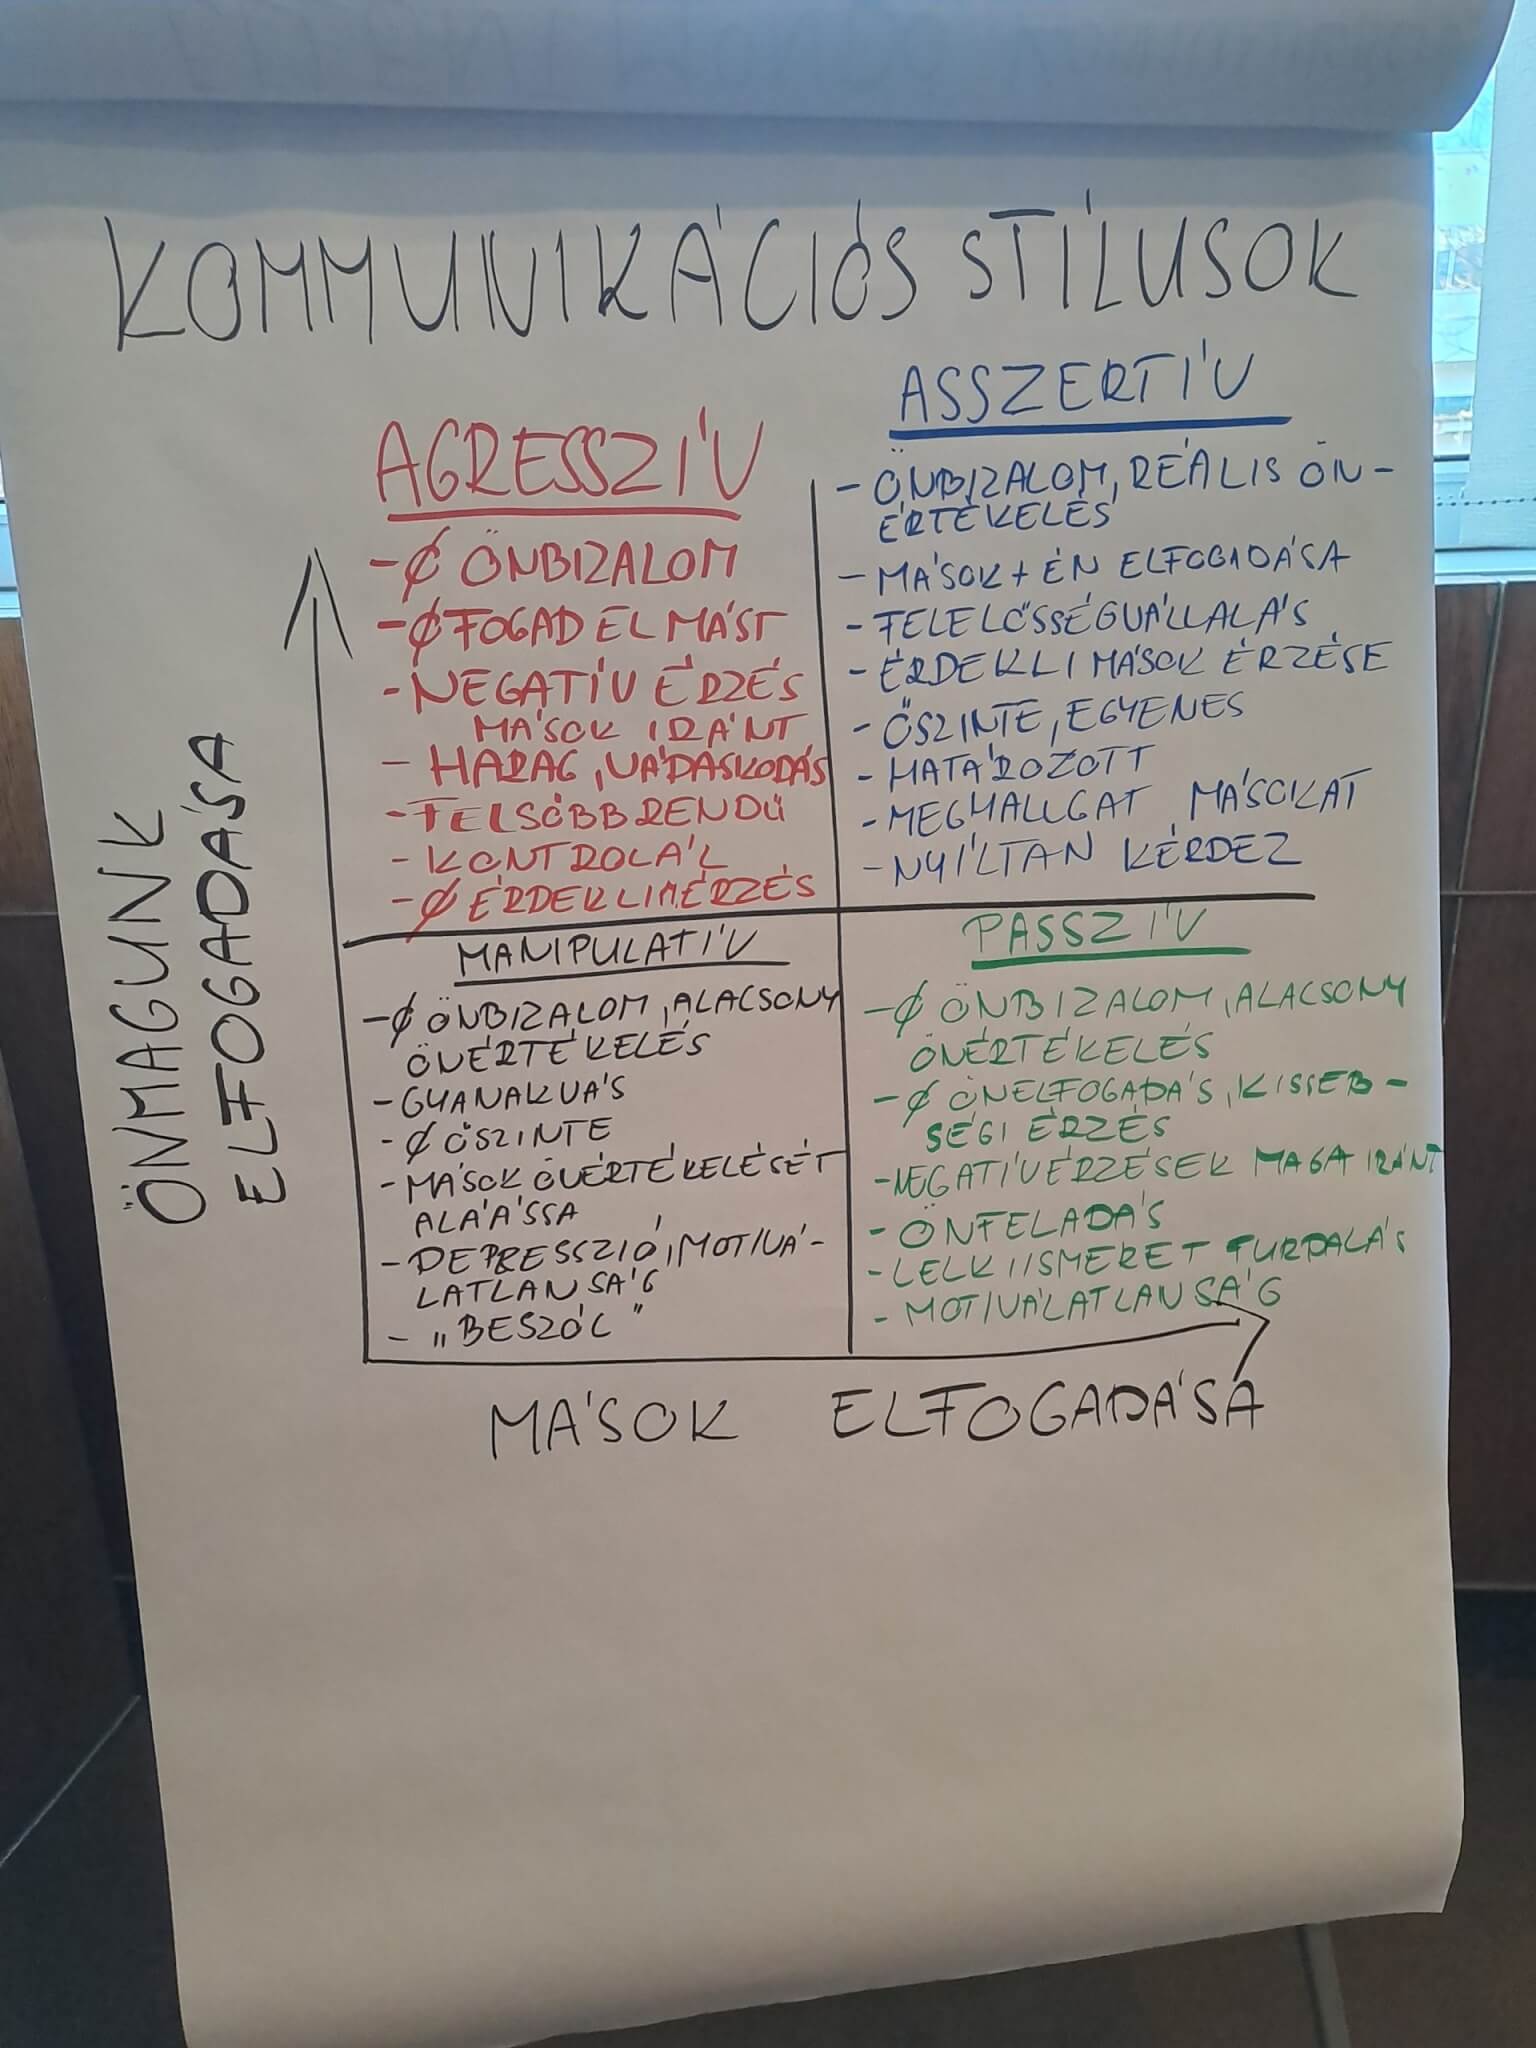 KOMMUNIKÁCIÓS STÍLUSOK
AGRESSZÍV
- Ø ÖNBIZALOM
- Ø FOGAD EL MÁST
- NEGATÍV ÉRZÉS
MÁSOK IRÁNT
- HARAG, VÁDASKODÁS
- FELSŐBBRENDŰ
- KONTROLÁL
- Ø ÉRDEKLI M.ÉRZÉS
ASSZERTÍV
- ÖNBIZALOM, REÁLIS ÖN-
ÉRTÉKELÉS
- MÁSOK + ÉN ELFOGADÁSA
- FELELŐSSÉGVÁLLALÁS
- ÉRDEKLI MÁSOK ÉRZÉSE
- ŐSZINTE, EGYENES
- HATÁROZOTT
- MEGHALLGAT MÁSOKAT
- NYÍLTAN KÉRDEZ
MANIPULATÍV
- Ø ÖNBIZALOM, ALACSONY
ÖNÉRTÉKELÉS
- GYANAKVÁS
- Ø ŐSZINTE
- MÁSOK ÖNÉRTÉKELÉSÉT
ALÁÁSSA
- DEPRESSZIÓ, MOTIVÁ-
LATLANSÁG
- „BESZÓL”
PASSZÍV
- Ø ÖNBIZALOM, ALACSONY
ÖNÉRTÉKELÉS
- Ø ÖNELFOGADÁS, KISSEB-
SÉGI ÉRZÉS
- NEGATÍV ÉRZÉSEK MAGA IRÁNT
- ÖNFELADÁS
- LELKIISMERET FURDALÁS
- MOTIVÁLATLANSÁG
ÖNMAGUNK
ELFOGADÁSA
MÁSOK ELFOGADÁSA